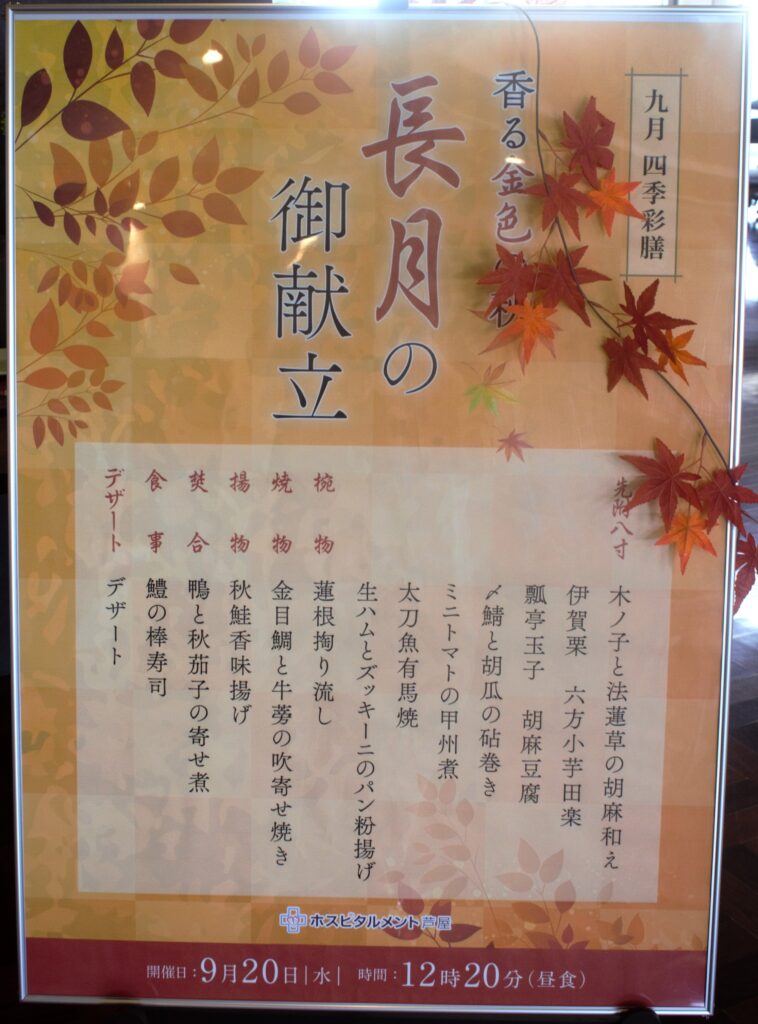 九月 四季彩膳
香る金色の秋
長月の
御献立
先附八寸
木ノ子と法蓮草の胡麻和え
伊賀栗 六方小芋田楽
瓢亭玉子 胡麻豆腐
〆鯖と胡瓜の砧巻き
ミニトマトの甲州煮
太刀魚有馬焼
生ハムとズッキーニのパン粉揚げ
椀物 蓮根掬り流し
焼物 金目鯛と牛蒡の吹寄せ焼き
揚物 秋鮭香味揚げ
焚合 鴨と秋茄子の寄せ煮
食事 鱧の棒寿司
デザート デザート
ホスピタルメント芦屋
開催日:9月20日|水| 時間:12時20分(昼食)